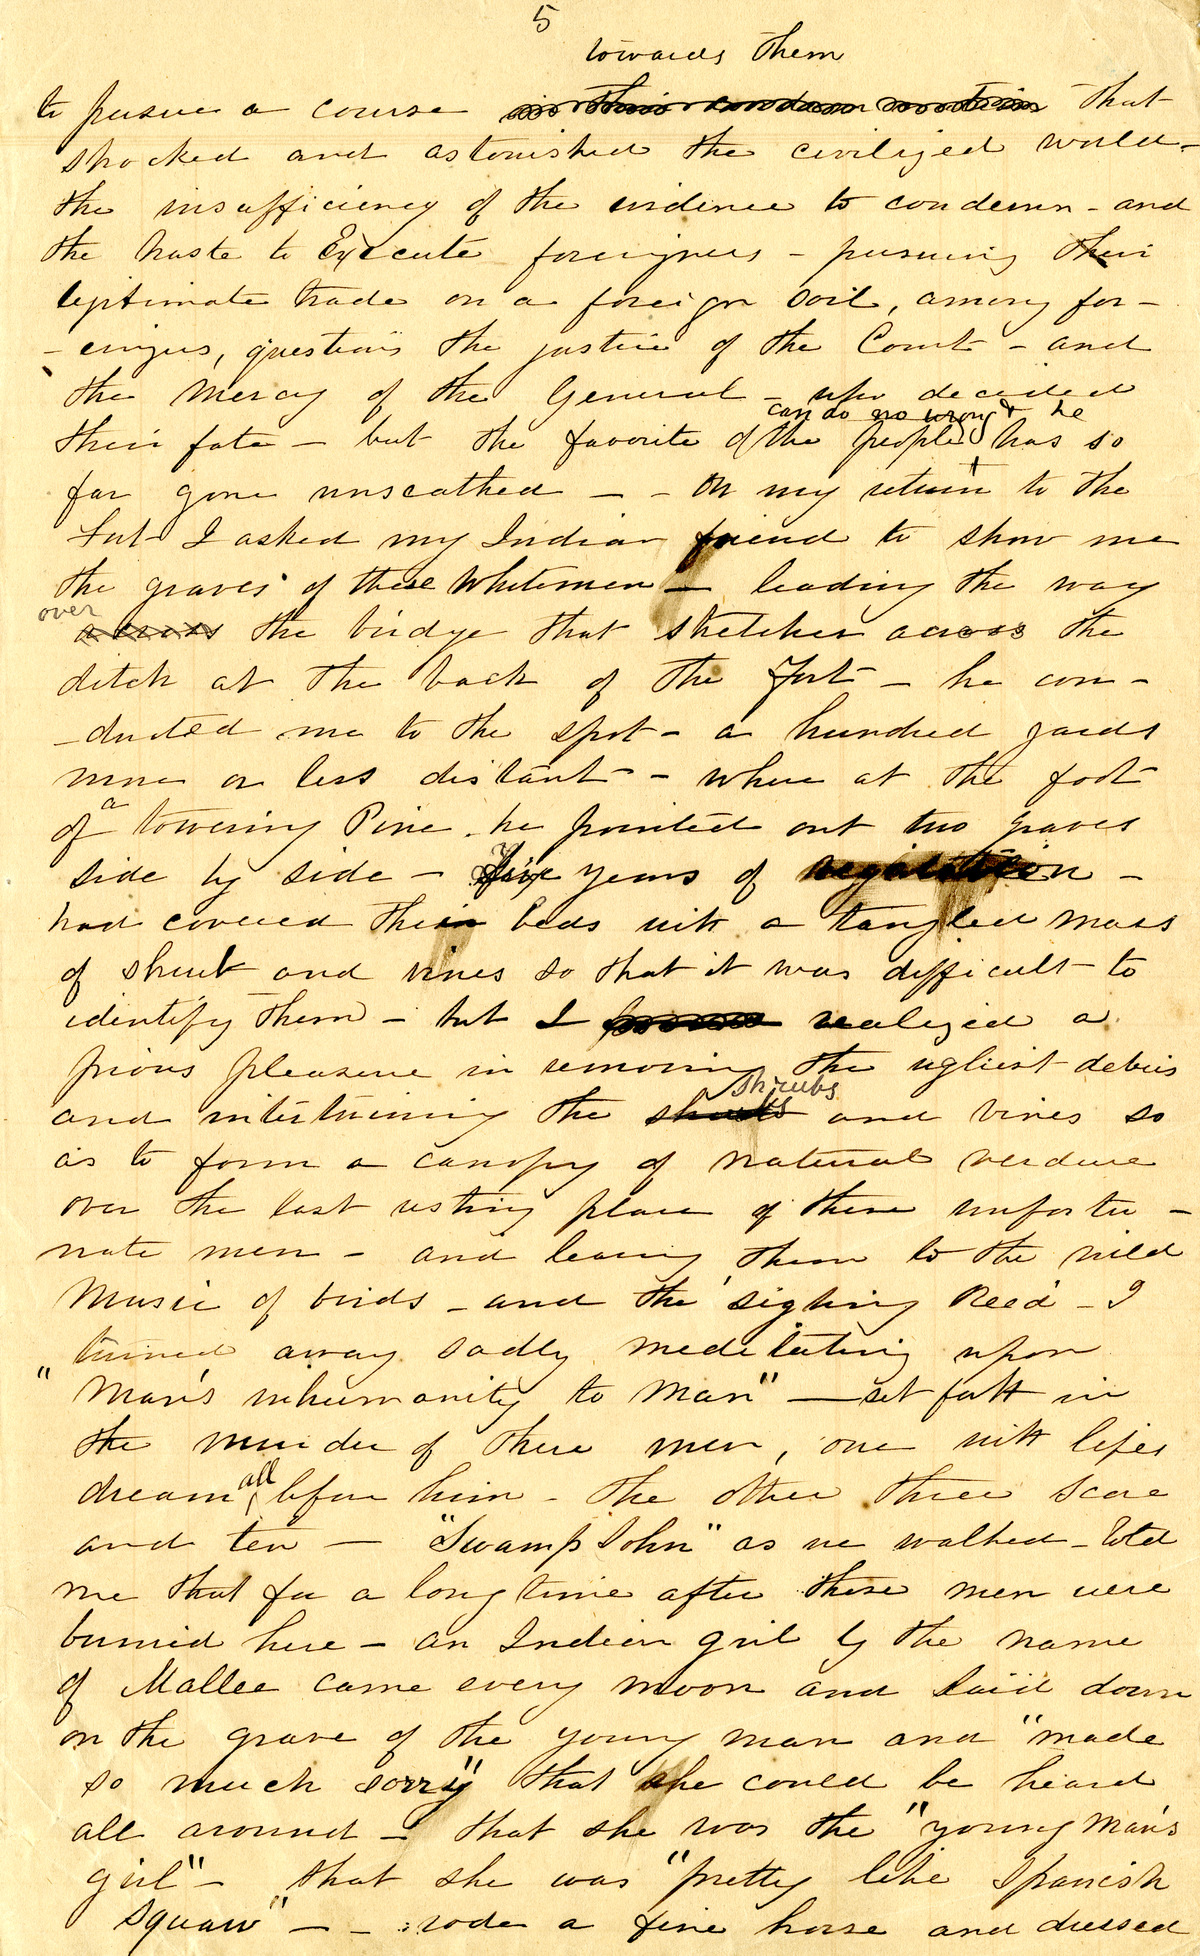 5
towards them
to pursue a course that
shocked and astonished the civilized world -
the insufficiency of the evidence to condemn - and
the haste to Execute foreigners - pursuing their
legitimate trade on a foreign soil, among for -
- eingers, questions the justice of the Court - and
the Mercy of the General - who decided
can do no wrong & he
their fate - but the favorite of the people has so
far gone unscathed - - On my return to the
fort I asked my Indian friend to show me
the graves of these Whitemen - leading the way
over
across the bridge that stretches across the
ditch at the back of the Fort - he con -
- ducted me to the spot - a hundred yards
more or less distant - where at the foot
of a towering Pine - he pointed out two graves
side by side - Five years of vegitation -
had covered their beds with a tangled mass
of shrub and vines so that it was difficult to
identify them - but I realized a
pious pleasure in removing the ugliest debris
shrubs
and intertwining the and vines so
as to form a canopy of natural verdure
over the last resting place of these unfortu -
nate men - and leaving them to the wild
Music of birds - and the sighing Reed - I
turned away sadly meditating upon
"Man's inhumanity to Man" - set forth in
the murder of these men, one with life's
dream all before him - the other three score
and ten - "Swamp John" as we walked - told
me that for a long time after these men were
burried here - an Indian girl by the name
of Mallee came every moon and laid down
on the grave of the young man and "made
so much sorry" that she could be heard
all around - that she was the "young Man's
girl" - that she was "pretty like Spanish
squaw" - - rode a fine horse and dressed